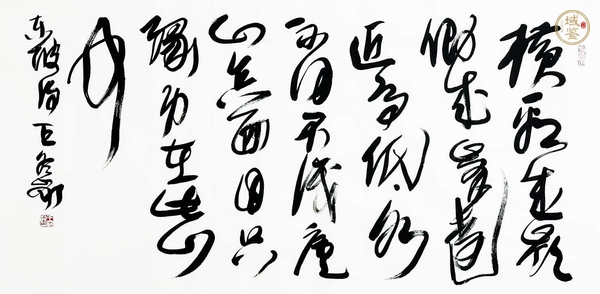 横看成岭
侧成峰远
近高低各
不同不识庐
山真面目只
缘身在此山
中
东坡诗
域鉴